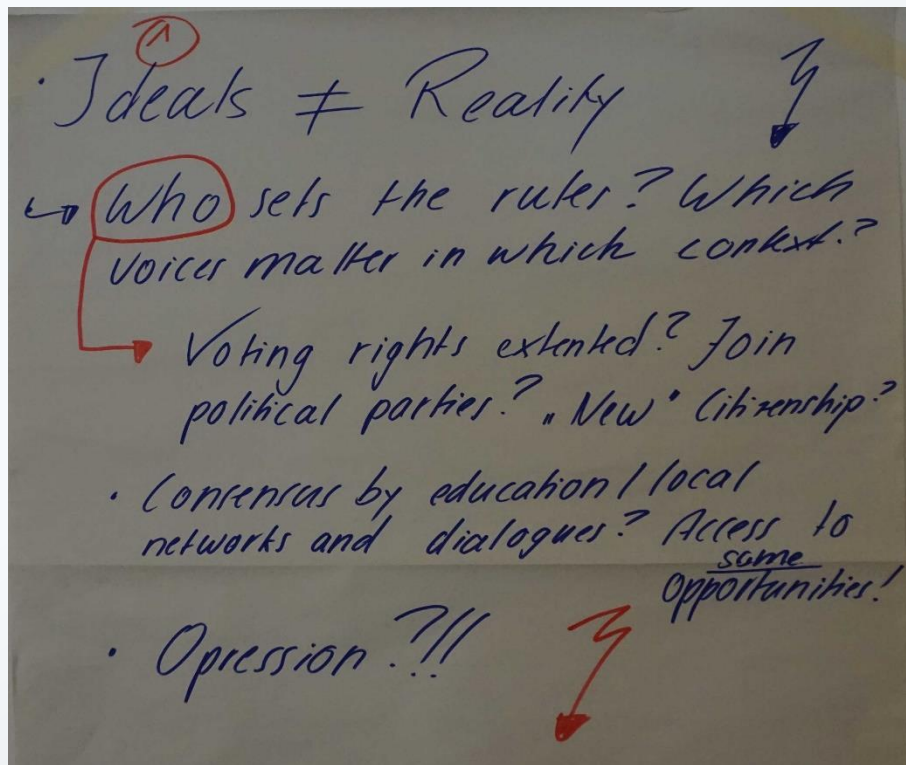 1
· Ideals ≠ Reality
↳ Who sets the rules? Which
voices matter in which context?
Voting rights extented? Join
political parties? „New" Citizenship?
· Consensus by education / local
networks and dialogues? Access to
same
Opportunities!
· Opression?!!